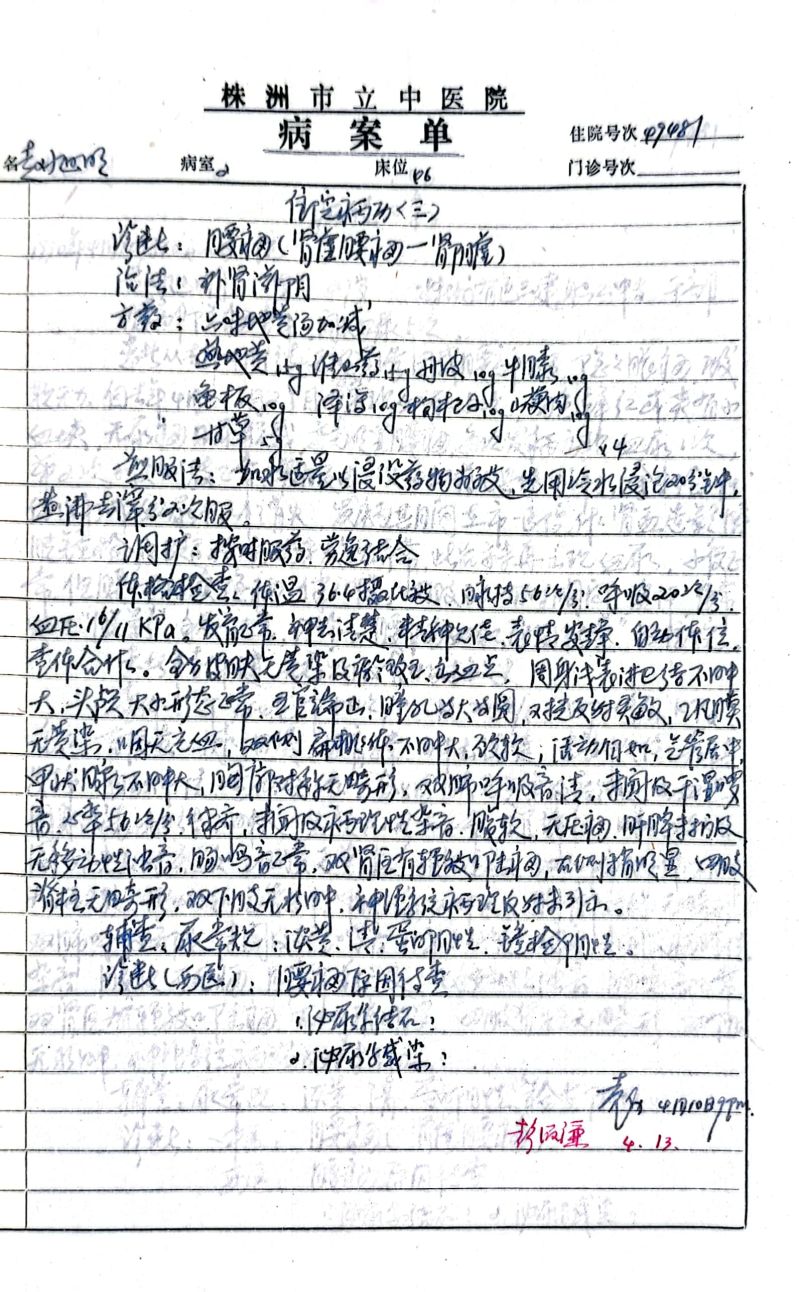 株洲市立中医院
病案单
住院号次 49487
名 病室 2 床位 46 门诊号次
住院病历(三)
诊断：腰痛(肾虚腰痛—肾阴虚)
治法：补肾滋阴
方药：六味地黄汤加减
熟地黄15g 淮山药15g 丹皮10g 牛膝10g
龟板10g 泽泻10g 枸杞子10g 山萸肉10g
甘草5g ×4
煎服法：加水适量以浸没药物为度，先用冷水浸泡20分钟，
煮沸去滓分2次服。
调护：按时服药，劳逸结合
体格检查：体温36.4摄氏度，脉搏56次/分，呼吸20次/分，
血压：16/11KPa。发育正常，神志清楚，精神欠佳，表情安静，自动体位，
查体合作。全身皮肤无黄染及瘀斑、出血点，周身浅表淋巴结不肿
大，头颅大小形态正常，五官端正，瞳孔等大等圆，对光反射灵敏，巩膜
无黄染，咽无充血，双侧扁桃体不肿大，颈软，活动自如，气管居中，
甲状腺不肿大，胸廓对称无畸形，双肺呼吸音清，未闻及干湿啰
音，心率56次/分，律齐，未闻及病理性杂音，腹软，无压痛，肝脾未扪及
无移动性浊音，肠鸣音正常，双肾区有轻微叩击痛，右侧稍明显，四肢
脊柱无畸形，双下肢无水肿，神经系统病理反射未引出。
辅查：尿常规：淡黄、清、蛋白阴性、镜检阴性。
诊断(西医)：腰痛原因待查
1.泌尿系结石？
2.泌尿系感染？
4月10日9pm.
4.13.